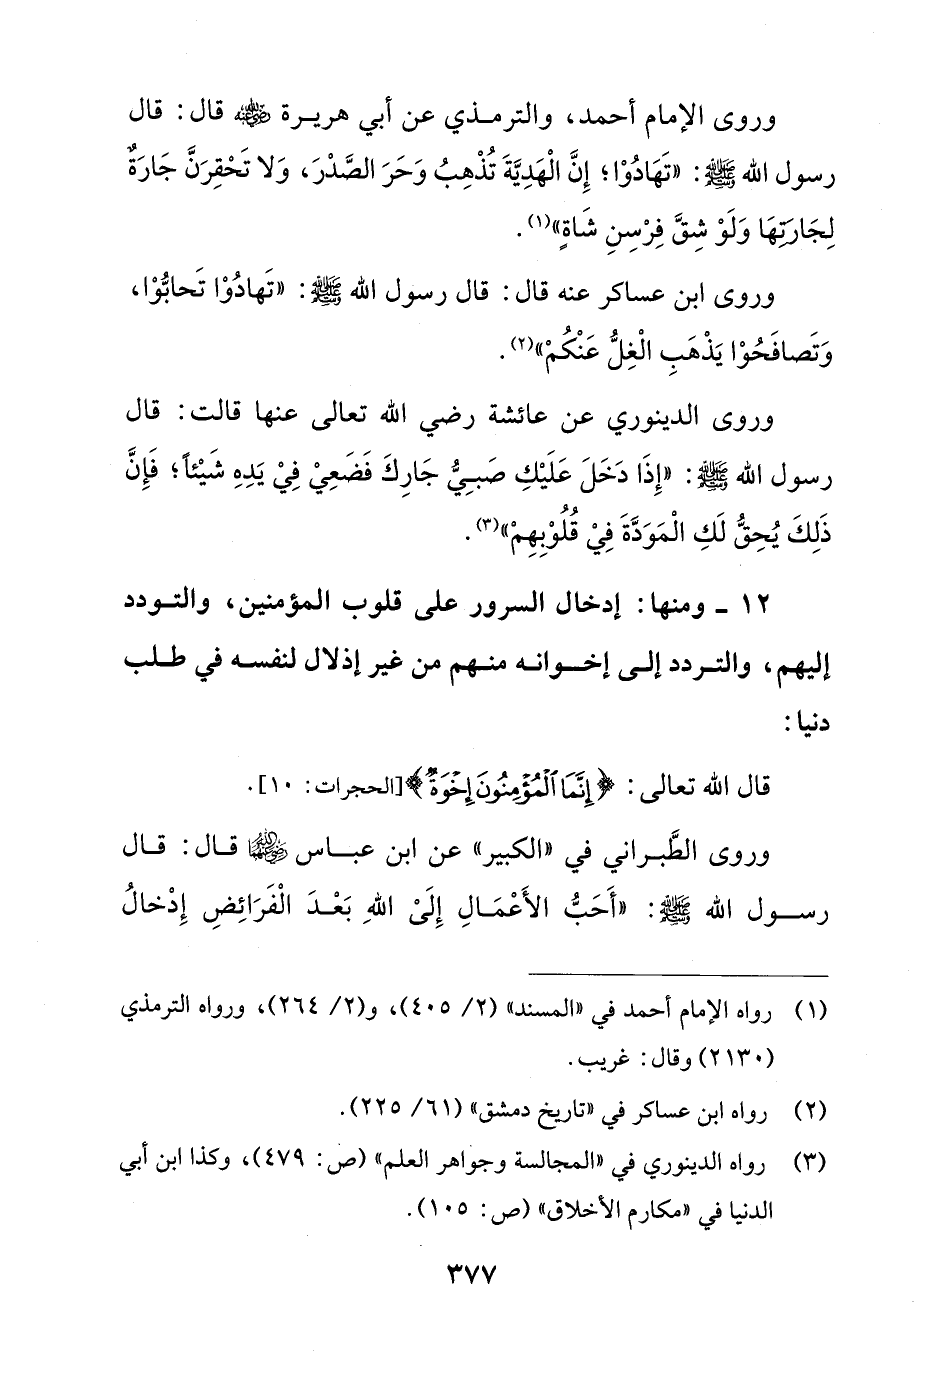 وروى الإمام أحمد، والترمذي عن أبي هريرة رضي الله عنه قال: قال
رسول الله ﷺ: «تَهَادُوْا؛ إِنَّ الْهَدِيَّةَ تُذْهِبُ وَحَرَ الصَّدْرَ، وَلا تَحْقِرَنَّ جَارَةٌ
لِجَارَتِهَا وَلَوْ شِقَّ فِرْسِنِ شَاةٍ»(١).
وروى ابن عساكر عنه قال: قال رسول الله ﷺ: «تَهادُوْا تَحابُّوْا،
وَتَصافَحُوْا يَذْهَبِ الْغِلُّ عَنْكُمْ»(٢).
وروى الدينوري عن عائشة رضي الله تعالى عنها قالت: قال
رسول الله ﷺ: «إِذَا دَخَلَ عَلَيْكِ صَبِيُّ جَارِكَ فَضَعِيْ فِيْ يَدِهِ شَيْئاً؛ فَإِنَّ
ذَلِكَ يُحِقُّ لَكِ الْمَوَدَّةَ فِيْ قُلُوْبِهِمْ»(٣).
١٢ ـ ومنها: إدخال السرور على قلوب المؤمنين، والتودد
إليهم، والتردد إلى إخوانه منهم من غير إذلال لنفسه في طلب
دنيا:
قال الله تعالى: ﴿إِنَّمَا ٱلْمُؤْمِنُونَ إِخْوَةٌ﴾[الحجرات: ١٠].
وروى الطَّبراني في «الكبير» عن ابن عباس رضي الله عنهما قال: قال
رسول الله ﷺ: «أَحَبُّ الأَعْمَالِ إِلَىْ اللهِ بَعْدَ الْفَرَائِضِ إِدْخالُ
(١) رواه الإمام أحمد في «المسند» (٢/ ٤٠٥)، و(٢/ ٢٦٤)، ورواه الترمذي
(٢١٣٠) وقال: غريب.
(٢) رواه ابن عساكر في «تاريخ دمشق» (٦١/ ٢٢٥).
(٣) رواه الدينوري في «المجالسة وجواهر العلم» (ص: ٤٧٩)، وكذا ابن أبي
الدنيا في «مكارم الأخلاق» (ص: ١٠٥).
٣٧٧